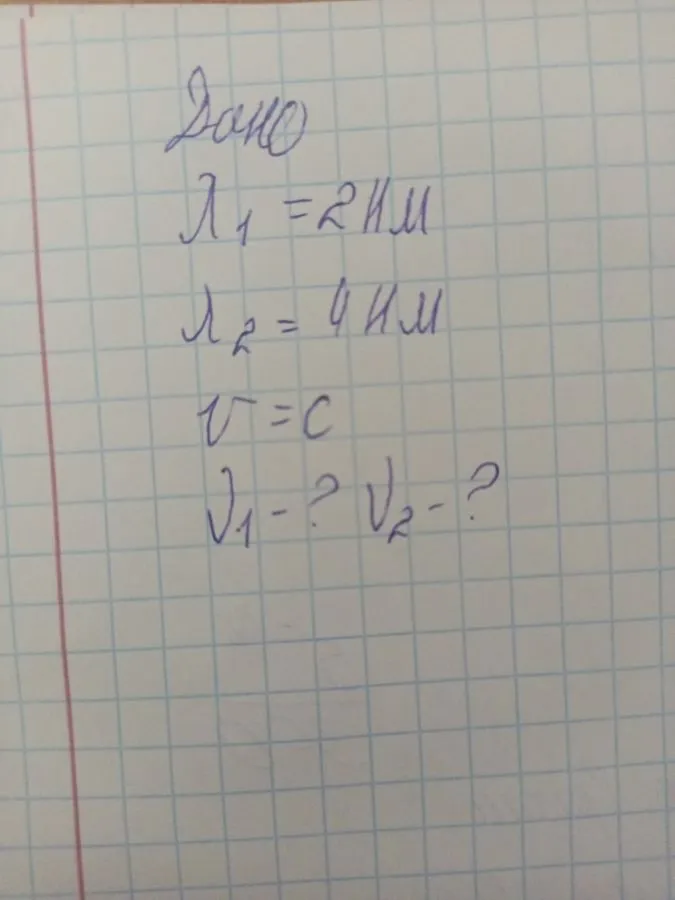 Дано
λ1 = 2 нм
λ2 = 4 нм
v = c
ν1 - ? ν2 - ?